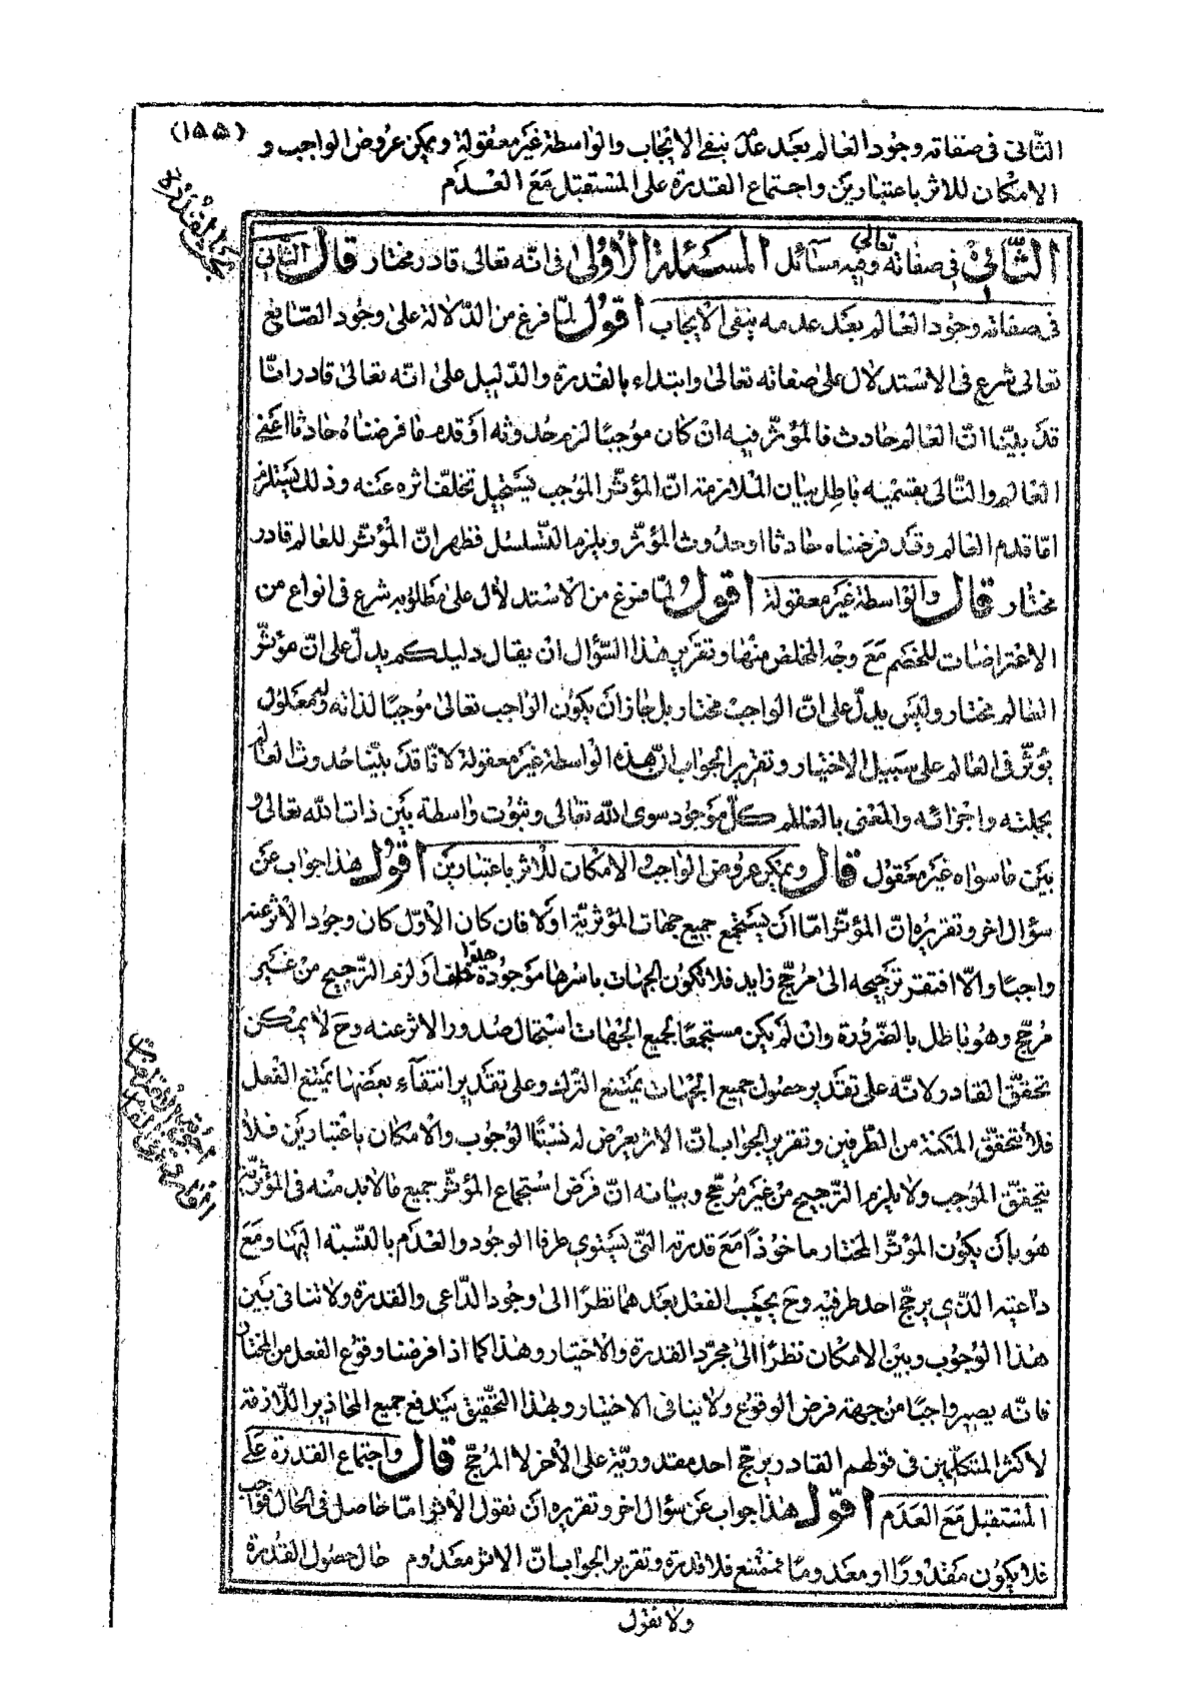 (١٥٥)
الثّانى فى صفاته وجُود العٰالم بعَد عدمه ينفى الايجٰاب والوٰاسطة غيَر معقولة ويمكن عروض الواجب و
الامكٰان للاثر باعتبٰارين واجتماع القدرة على المستقبل مَعَ العَدَم
بحث القُدْرَة
الثّٰانى فى صفاته تعالى وفيه مسٰآئل المسَئلة الأُولىٰ فى انّه تعالى قادر مختٰار قٰال الثّٰانى
فى صفاته وجُود العٰالم بعَد عدمه ينفى الايجٰاب اقولُ لمّا فرغ من الدّلالة علىٰ وجُود الصّٰانع
تعالى شرع فى الاستدلال على صفاته تعالىٰ وابتداء بالقدرة والدّليل علىٰ انّه تعالىٰ قادر انّا
قدَ بيّنا انّ العٰالم حٰادث فالمؤثّر فيه انْ كان مُوجبًا لزم حُدوثه اوَ قدم مٰا فرضنٰاهُ حٰادثًا اعَنى
العٰالم والتّٰالى بقسمَيه بٰاطِل بيٰان الملازمة انّ المؤثّر المُوجب يَستحيل تخلّف اثره عَنه وذلك يَستلزم
امّا قدم العٰالم وقَد فرضناه حٰادثًا او حدُوث المؤثّر ويلزم التّسَلسُل فظهر انّ المُؤثّر للعٰالم قادر
مختٰار قٰال والوٰاسطة غيَر معقولة اقولُ لمّا فرغ من الاستدلال علىٰ مَطلوُبه شرع فى انواع من
الاعتراضٰات للخصَم مَعَ وجْه المخلص منْها وتقرير هٰذا السّؤال انْ يقٰال دليلكم يدلّ على انّ مؤثّر
العٰالم مختٰار وليَس يدلّ على انّ الواجبْ مختٰار بل جٰاز انَ يكوُن الواجب تعٰالىٰ مُوجبًا لذاته لمعَلول
يؤثّر فى العٰالم على سَبيل الاختيٰار وتقرير الجوٰاب انّ هٰذه الوٰاسطة غيَر معقولة لانّا قدَ بيّنّا حدُوث العٰالم
بجملته واجْزائه والمعَنى بالعٰالم كلّ مَوجُود سوى اللّٰه تعٰالى وثبوُت وٰاسطة بيَن ذات اللّٰه تعالىٰ و
بيَن مٰا سواه غيَر مَعقول قٰال ويمكن عروُض الوٰاجب والامكٰان للْاثر باعتبٰارين اقولُ هٰذا جوٰاب عَن
سؤال اخر وتقريره انّ المؤثّر امّا انَ يَستجمع جميع جهٰات المؤثّريّة اولا فان كان الأوّل كان وجُود الاثر عنه
واجبًا والّا افتقر ترجيحه الىٰ مرجّح زايد فلا تكوُن الجهات باسْرها مَوجُودة هف اوَ لزم الترّجيح من غيَر
مُرجّح وهُو بٰاطل بالضرّورة وانْ لم يكن مستجمعًا لجميع الجهٰات استحال صدُور الاثر عنه وحَ لا يمكن
تحقّق القادر لانّه على تقدير حصُول جميع الجهٰات يمَتنع الترّك وعلى تقدير انتفٰآء بعَضها يمَتنع الفعل
فلا تتحقّق المكنة من الطّرفين وتقرير الجواب انّ الاثر يعرض له نسْبتَا الوُجوب والامكٰان باعْتبارين فلا
يتحقّق المُوجب ولا يلزم الترّجيح من غيَر مُرجّح وبيٰانه انّ فرَض استجماع المؤثّر جميع مٰا لابد منْه فى المؤثّريّة
هُو بانَ يكوُن المؤثّر المختار ماخوُذًا مَعَ قدرته التّى يَستوي طرفٰا الوجود والعَدَم بالنّسبَة اليهٰا ومَعَ
داعيته الذّي يرجّح احد طرفيْه وحَ يجبَ الفعْل بعَدهمٰا نظرًا الىٰ وجُود الدّاعى والقدرة ولا تنافى بيَن
هٰذا الوُجُوب وبيَن الامكٰان نظرًا الىٰ مجرّد القدرة والاختيٰار وهٰذا كما اذا فرضنٰا وقوُع الفعل من المختٰار
فانّه يصير واجبًا من جهة فرض الوقوُع ولا ينٰافى الاختيار وبهٰذا التّحقيق يَندفع جميع المحٰاذير اللّازمة
لاكثر المتكلّمين فى قولهم القٰادر يرجّح احد مقدوريه على الاخر لا لمرجّح قٰال واجتماع القدرة عَلى
المسْتقبل مَعَ العَدَم اقولُ هٰذا جواب عَن سؤال اخر وتقريره انَ نقول الاثر امّا حٰاصل فى الحٰال فواجب
فلا يكوُن مَقدُورًا او معَدومًا فممتنع فلا قدرة وتقرير الجوٰاب انّ الاثر معَدُوم حٰال حصُول القدرة
ولا نقول